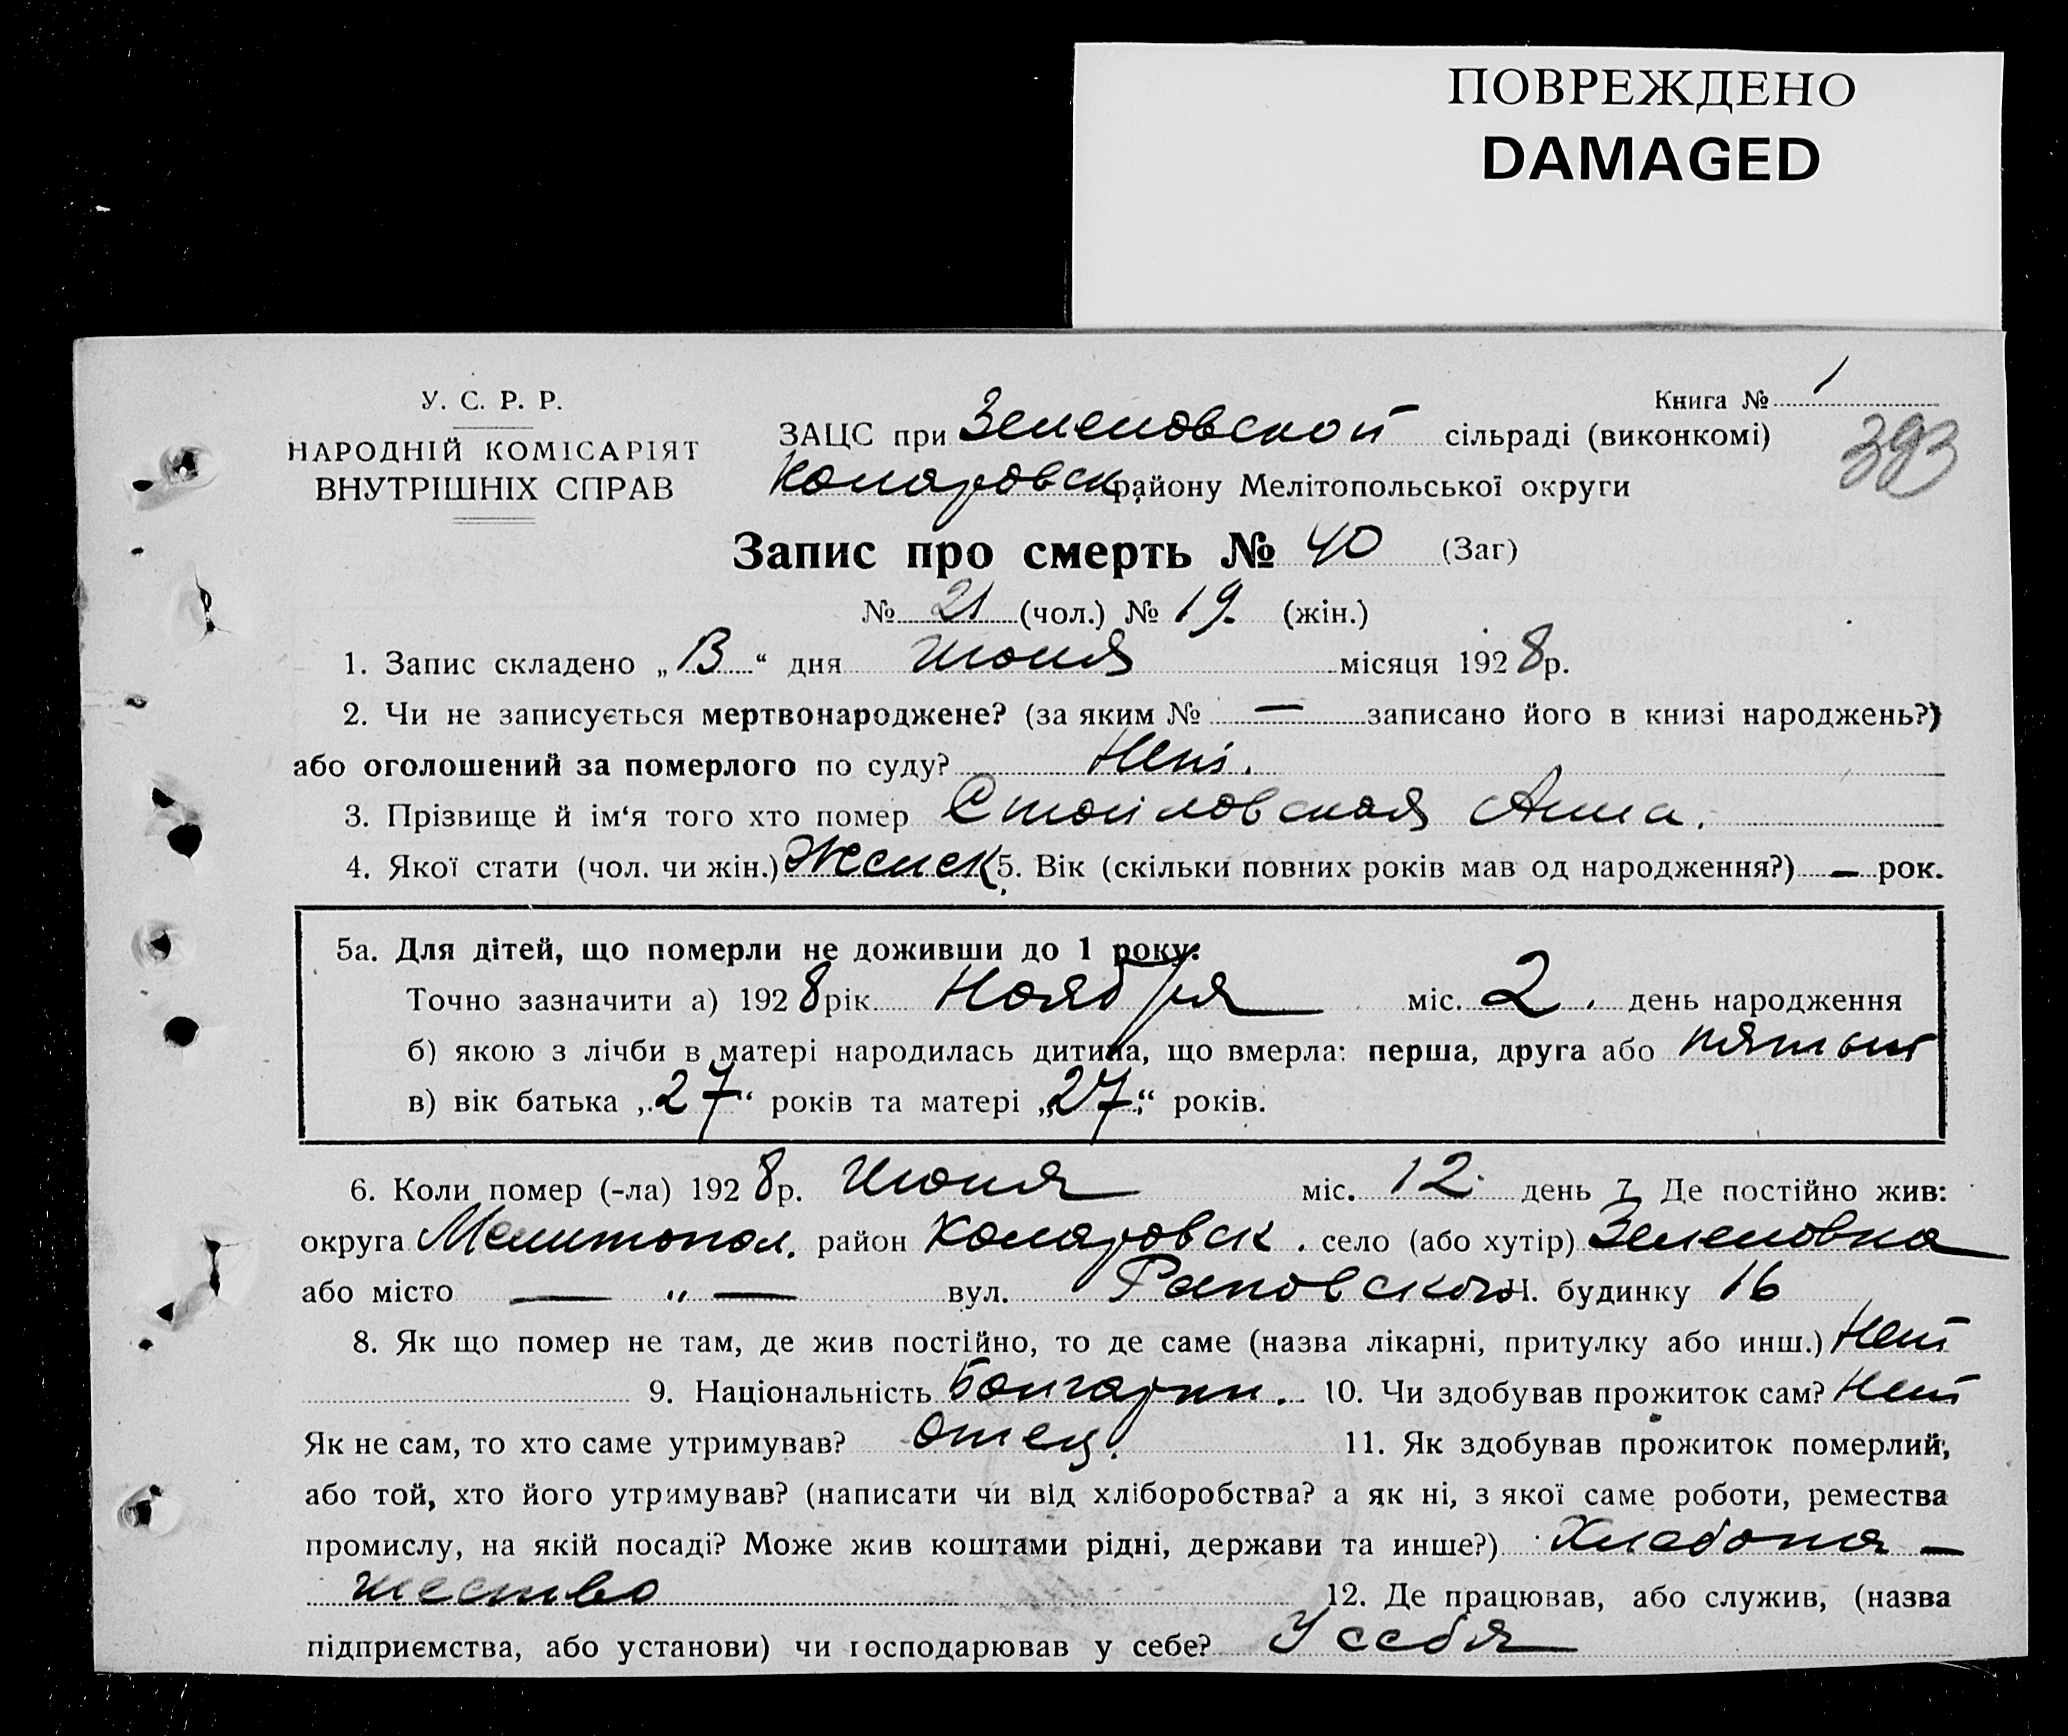 ПОВРЕЖДЕНО
DAMAGED
У. С. Р. Р.
НАРОДНІЙ КОМІСАРІЯТ
ВНУТРІШНІХ СПРАВ
Книга № 1
393
ЗАЦС при Зеленовской сільраді (виконкомі)
району Мелітопольської округи
Запис про смерть № 40 (Заг)
№ 21 (чол.) № 19. (жін.)
1. Запис складено „13“ дня Июня місяця 1928 р.
2. Чи не записується мертвонароджене? (за яким № — записано його в книзі народжень?)
або оголошений за померлого по суду? Нет.
3. Прізвище й ім‘я того хто помер Стойловская Анна.
4. Якої стати (чол. чи жін.) Женск 5. Вік (скільки повних років мав од народження?) — рок.
5а. Для дітей, що померли не доживши до 1 року:
Точно зазначити а) 1928 рік Ноября міс. 2. день народження
б) якою з лічби в матері народилась дитина, що вмерла: перша, друга або пятый
в) вік батька „27“ років та матері „27“ років.
6. Коли помер (-ла) 1928 р. Июня міс. 12. день 7. Де постійно жив:
округа Мелитопол. район село (або хутір) Зеленовка
або місто — „ — вул. Раковского Н. будинку 16
8. Як що помер не там, де жив постійно, то де саме (назва лікарні, притулку або инш.) Нет
9. Національність Болгарин. 10. Чи здобував прожиток сам? Нет
Як не сам, то хто саме утримував? Отец. 11. Як здобував прожиток померлий,
або той, хто його утримував? (написати чи від хліборобства? а як ні, з якої саме роботи, ремества
промислу, на якій посаді? Може жив коштами рідні, держави та инше?) Хлебопа-
шество 12. Де працював, або служив, (назва
підприємства, або установи) чи господарював у себе? У себя